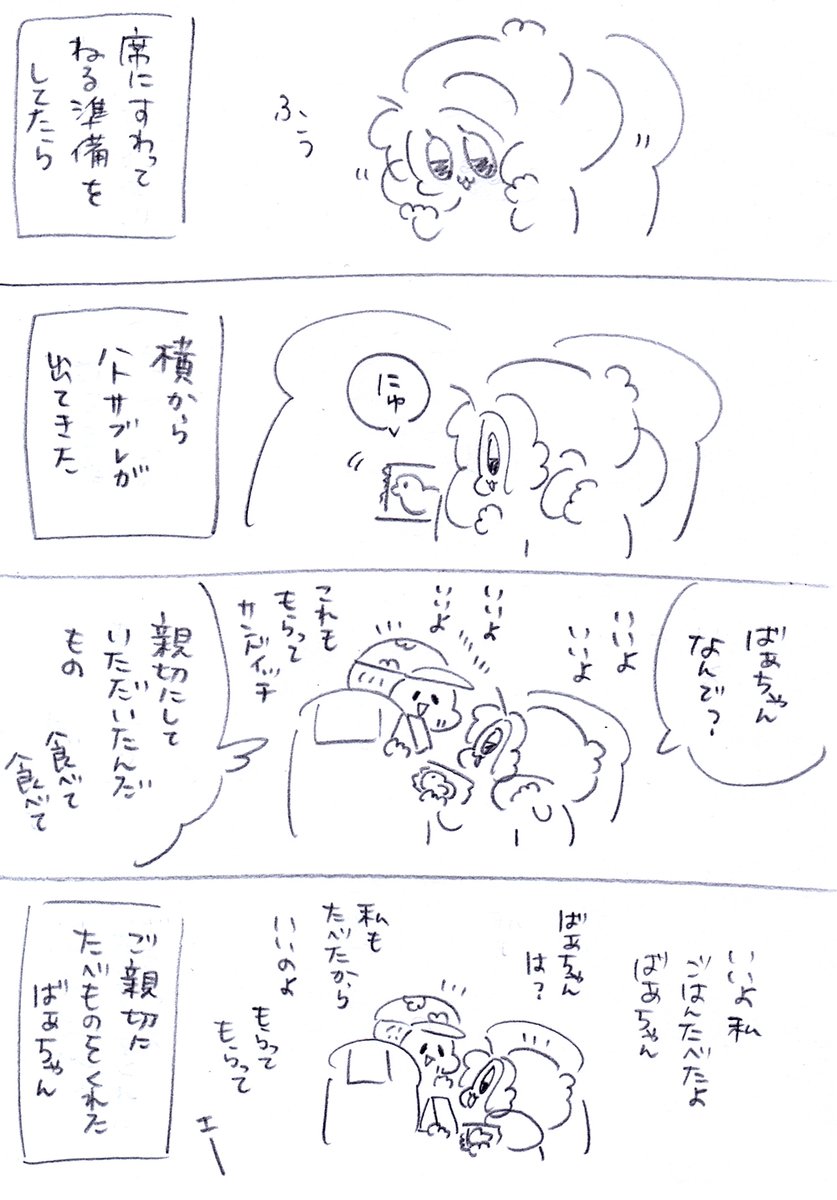 席にすわって
ねる準備を
してたら
ふぅ
横から
ハトサブレが
出てきた
にゅ
ばあちゃん
なんで?
いいよ
いいよ
いいよ
いいよ
これも
もらって
サンドイッチ
親切にして
いただいたんだ
もの
食べて
食べて
いいよ私
ごはんたべたよ
ばあちゃん
ばあちゃん
は?
私も
たべたから
いいのよ
もらって
もらって
エー
ご親切に
たべものをくれた
ばあちゃん